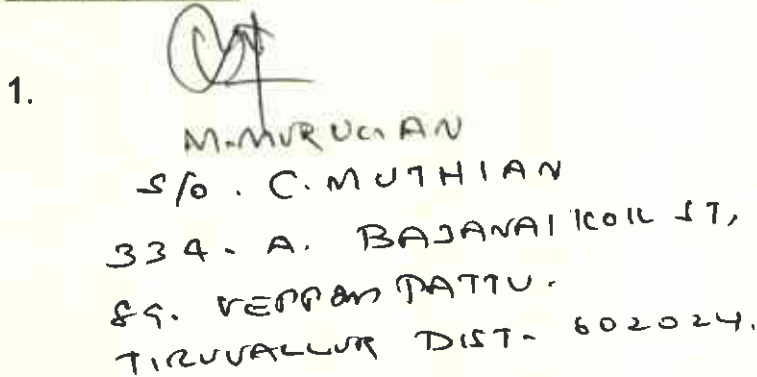 1.
M. MURUGAN
S/o. C. MUTHIAN
334-A. BAJANAI KOIL ST,
VEPPAM PATTU.
TIRUVALLUR DIST- 602024.